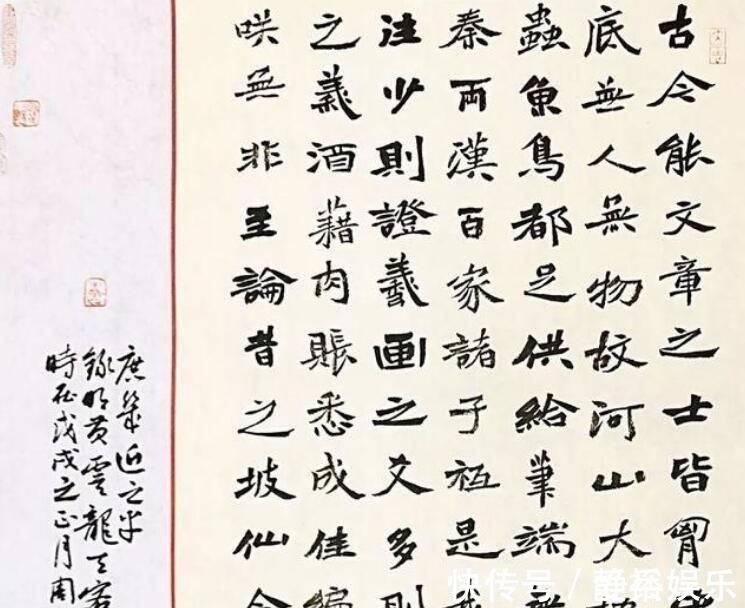 古今能文章之士皆胷
底無人無物故河山大
蟲魚鳥都足供給筆端
秦兩漢百家諸子秖是
注少則證羲画之爻多則
之羲酒藉肉賬悉成佳編
咲無非至論昔之坡仙今
庶几近之乎
錄明黄雲龍
時在戊戌之正月周
快传号/静裕娱乐